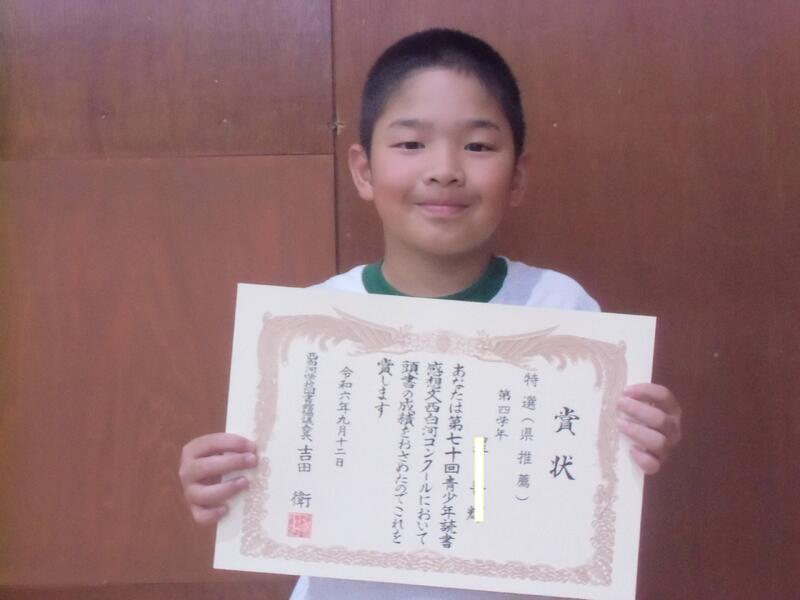 賞状
特選（県推薦）
第四学年
あなたは第七十回青少年読書
感想文西白河コンクールにおいて
頭書の成績をおさめたのでこれを
賞します
令和六年九月十二日
西白河学校図書館協議会長 吉田 衛